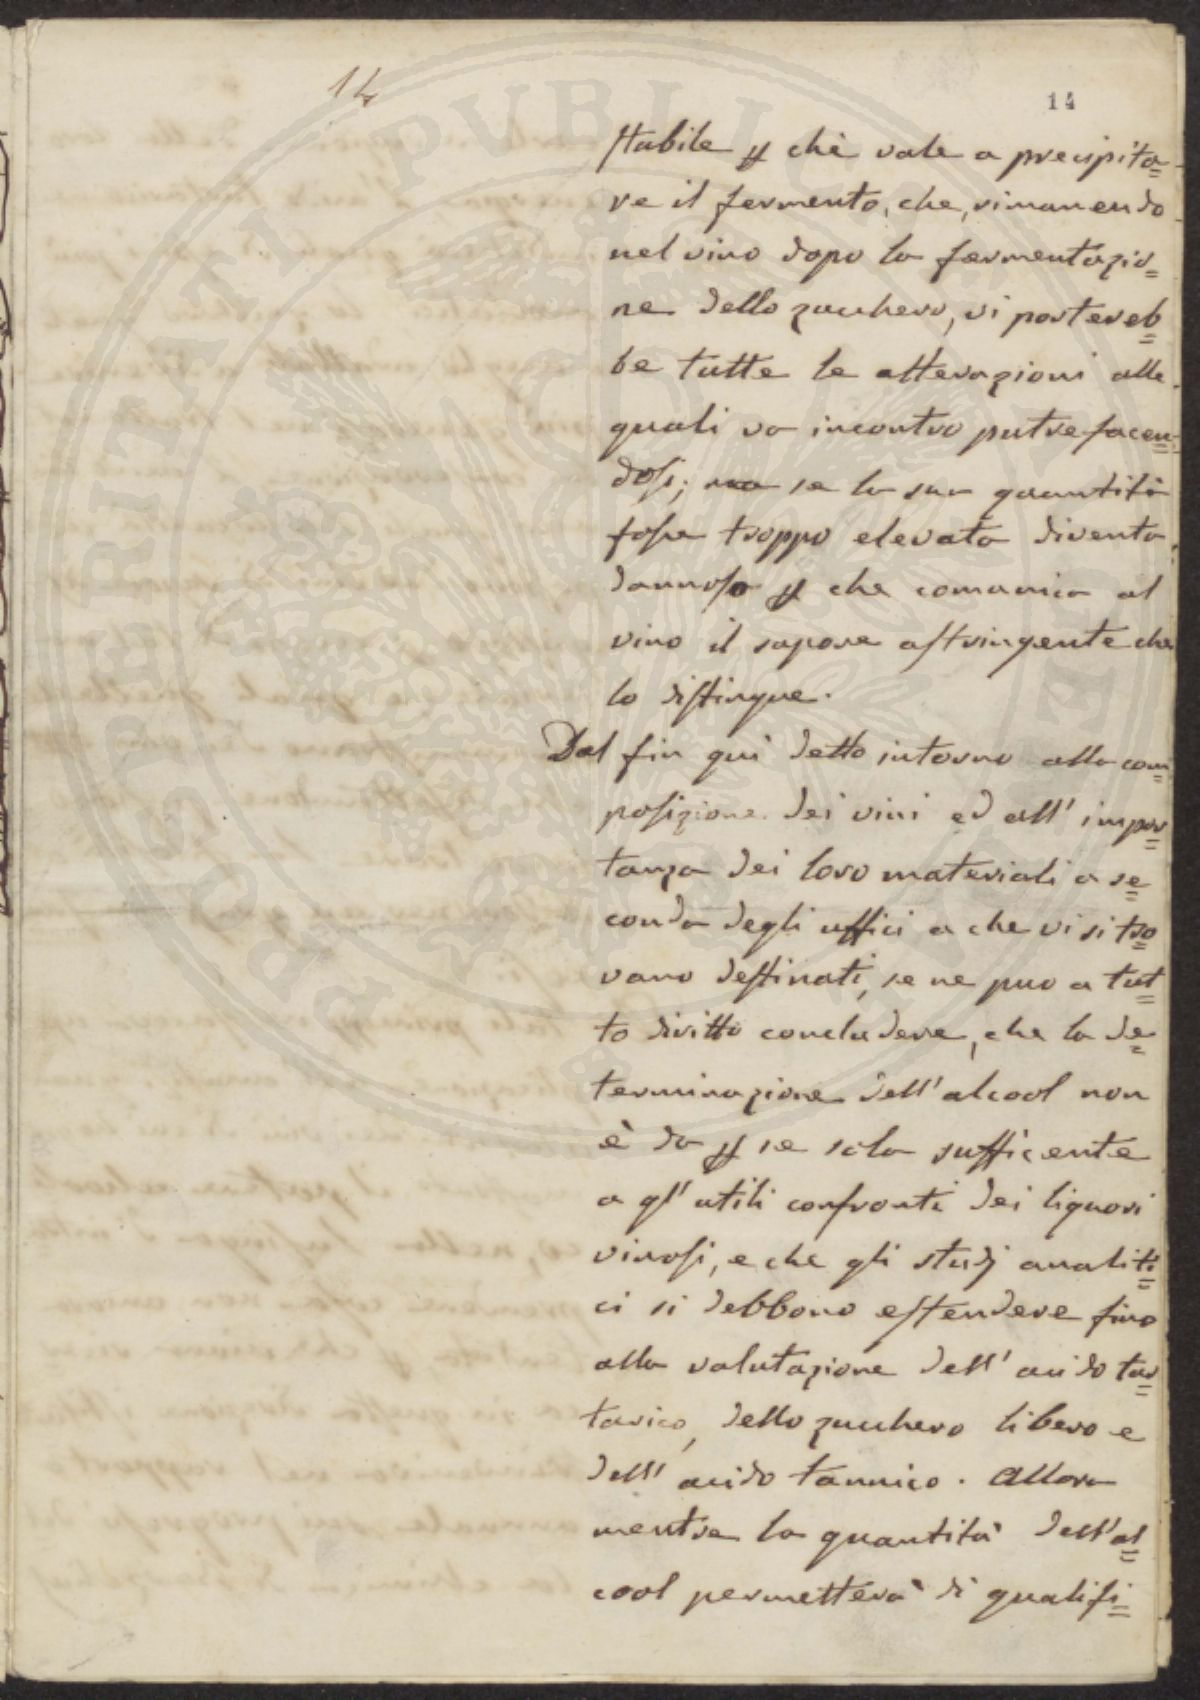 14
14
stabile p chè vale a precipita=
re il fermento, che, rimanendo
nel vino dopo la fermentazio=
ne dello zucchero, vi portereb=
be tutte le alterazioni alle
quali va incontro putrefacen=
dosi; ma se la sua quantità
fosse troppo elevata diventa
dannosa p che comunica al
vino il sapore astringente che
lo distingue.
Dal fin quì detto intorno alla com=
posizione dei vini ed all' impor=
tanza dei loro materiali a se=
conda degli uffici a che vi si tro=
vano destinati, se ne puo a tut=
to diritto concludere, che la de=
terminazione dell' alcool non
è da p se sola sufficente
a gl' utili confronti dei liquori
vinosi, e che gli studj analiti=
ci si debbono estendere fino
alla valutazione dell' acido tar=
tarico, dello zucchero libero e
dell' acido tannico. Allora
mentre la quantità dell' al=
cool permetterà di qualifi=
PROSPERITATI PUBLICAE